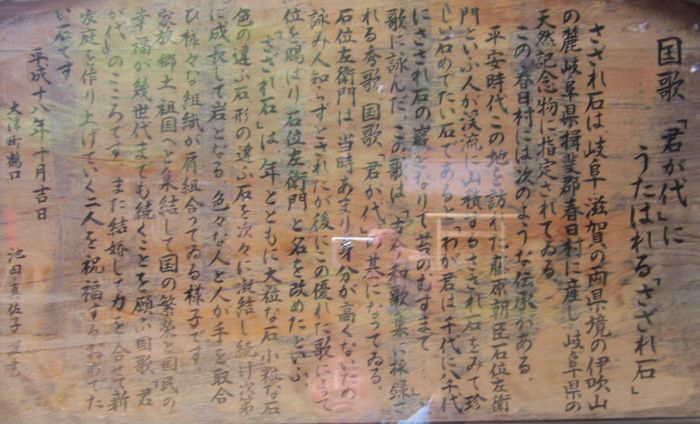 国歌「君が代」に
うたはれる「さざれ石」
さざれ石は、岐阜、滋賀の両県境の伊吹山
の麓岐阜県揖斐郡春日村に産し、岐阜県の
天然記念物に指定されてゐる。
この春日村には次のような伝承がある。
平安時代、この地を訪れた藤原朝臣石位左衛
門といふ人が渓流に山積するさざれ石をみて珍
しい石めでたい石であると、「わが君は千代に八千代
にさざれ石の巌となりて苔のむすまで……」と
歌に詠んだ。この歌は、「古今和歌集」に採録さ
れる秀歌、国歌「君が代」の基になってゐる。
石位左衛門は、当時あまり身分が高くないため
詠み人知らずとされたが後にこの優れた歌によって
位を賜はり石位左衛門と名を改めたといふ
「さざれ石」は、年とともに大粒な石小粒な石
色の違ふ石形の違ふ石を次々に凝結し続け次第
に成長して岩となる。色々な人と人が手を取合
ひ様々な組織が肩組合ってゐる様子です。
家族、郷土、祖国へと集結して国の繁栄と国民の
幸福が幾世代までも続くことを願ふ国歌「君
が代」のこころです。また結婚して力を合せて新
家庭を作り上げていく二人を祝福するおめでた
い石です。
平成十八年十月吉日
大津町鶴口
池田真佐子